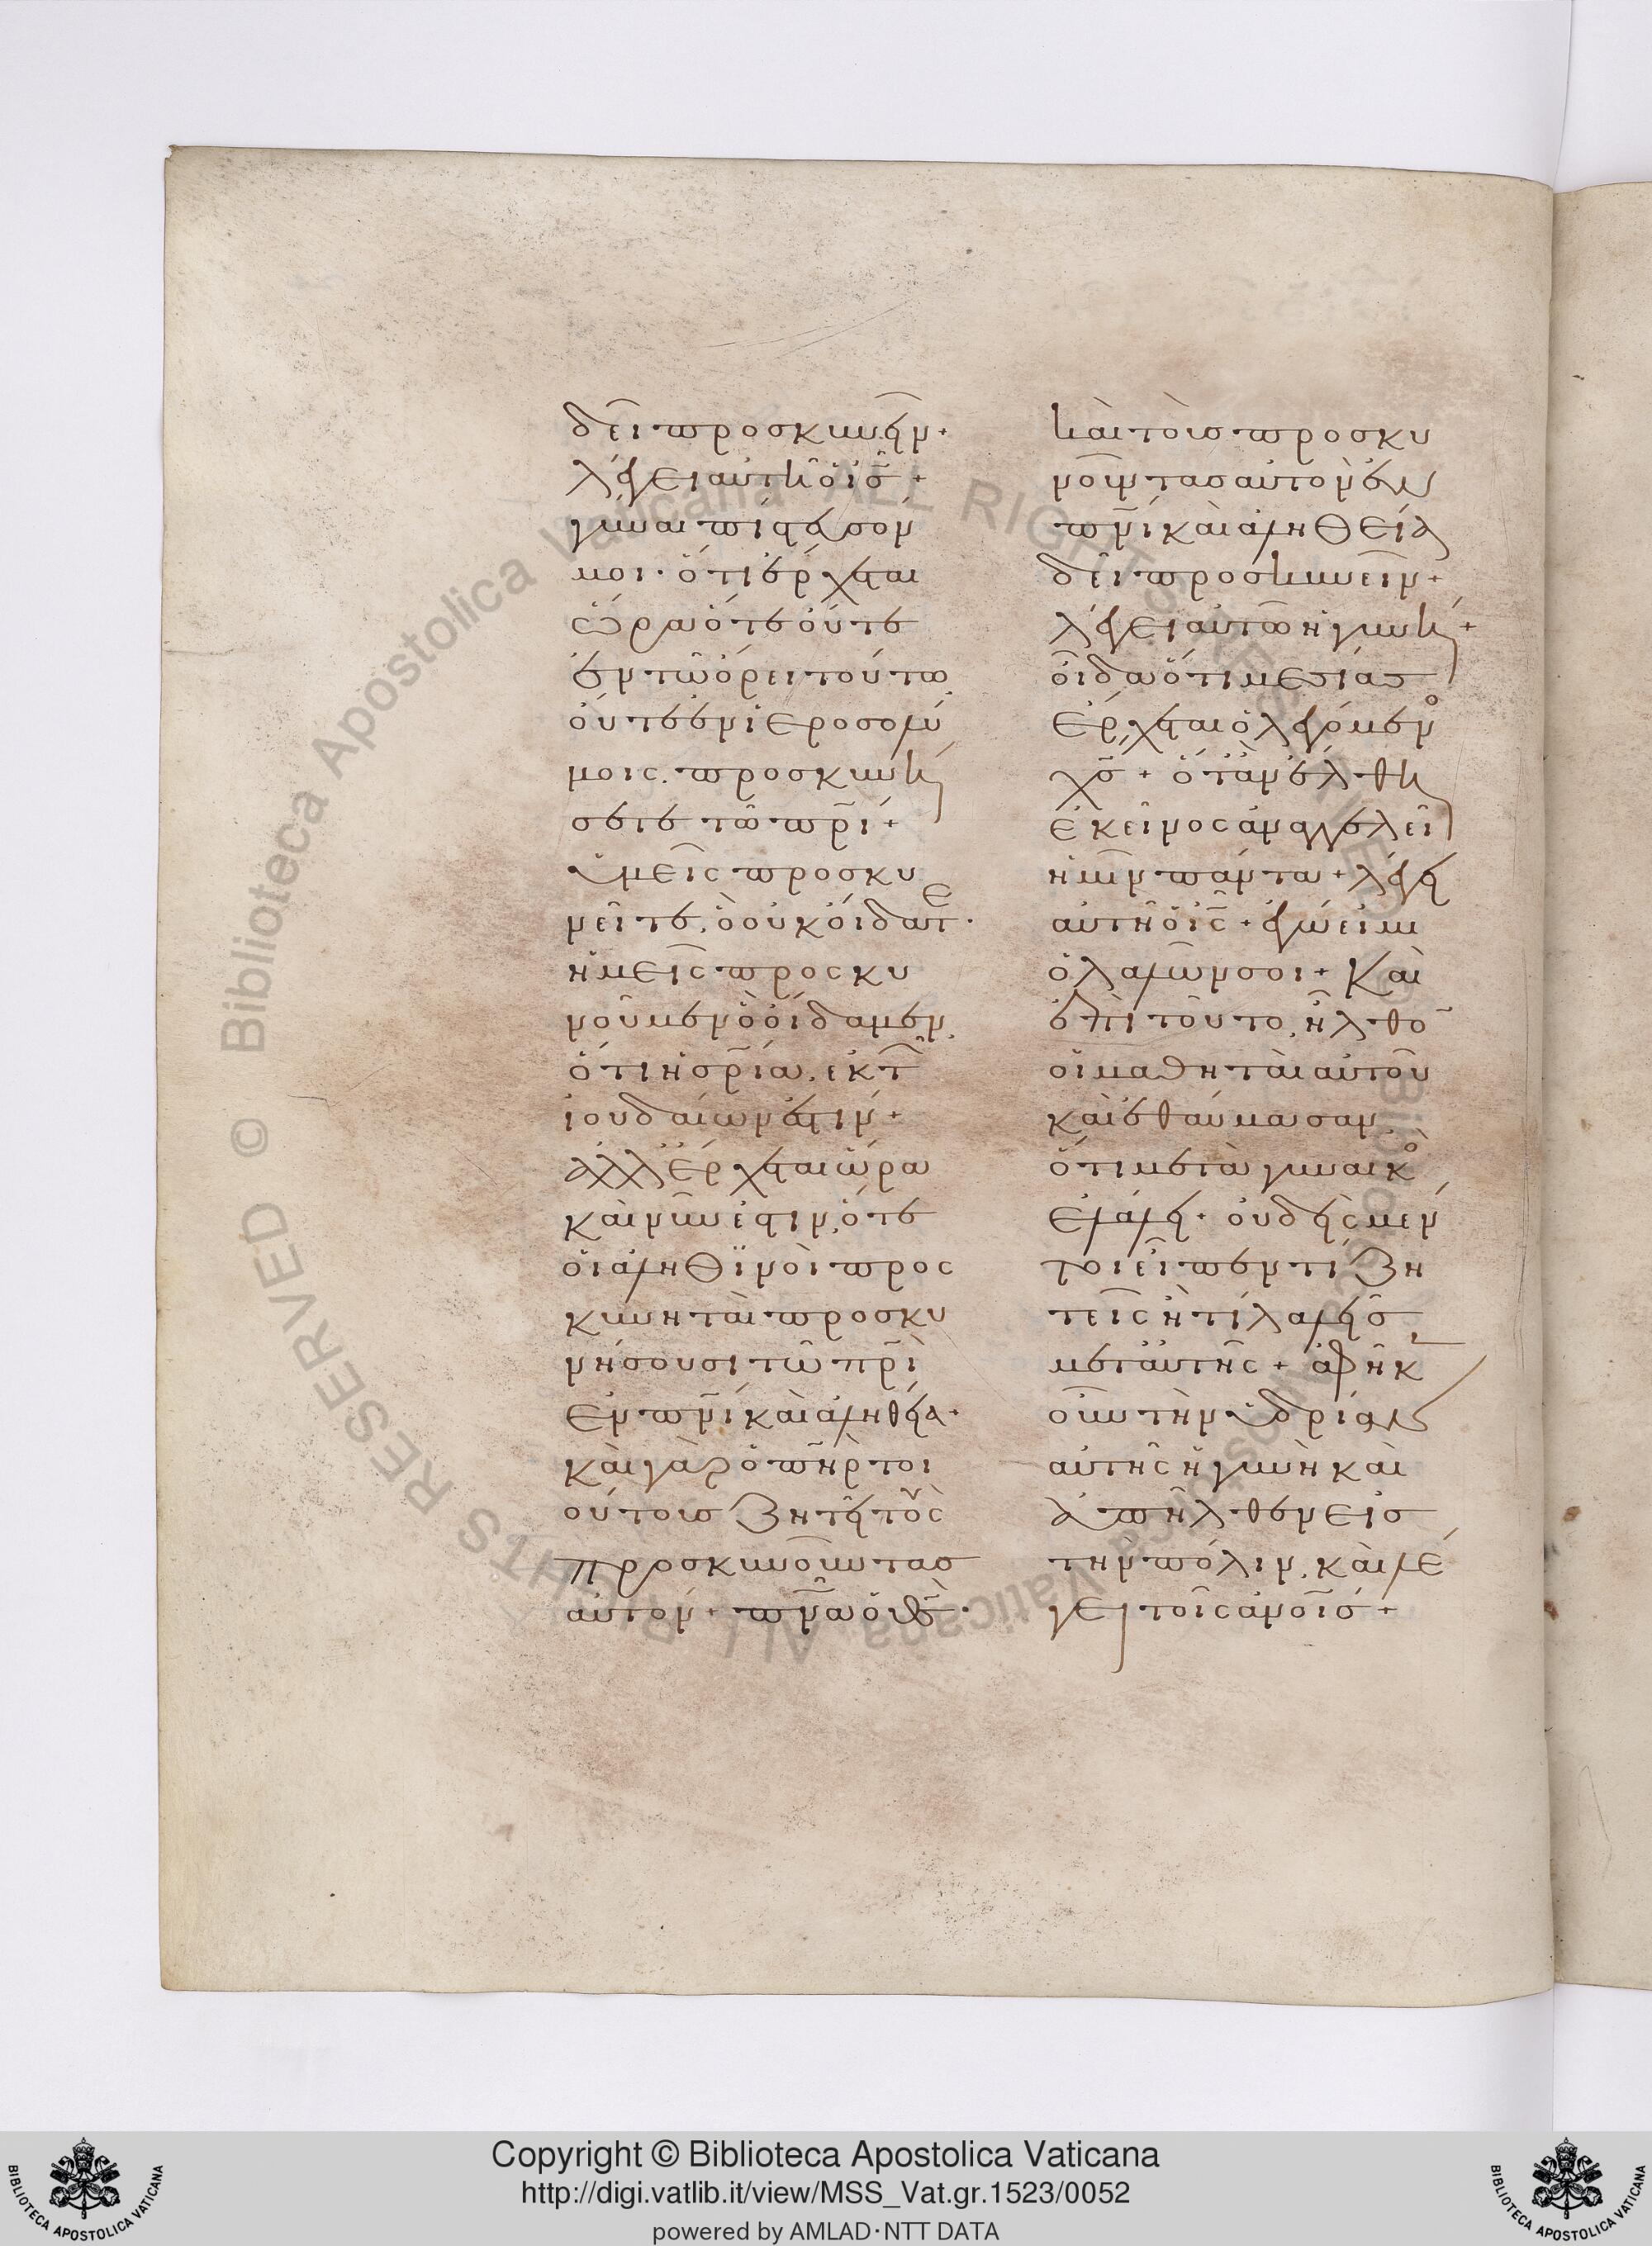 δεῖ προσκυνεῖν·
λέγει αὐτῆ ὁ ἰς̅ +
γύναι πίστευσόν
μοι· ὅτι ἔρχεται
ὥρα ὅτε οὔτε
ἐν τῶ ὄρει τούτω
οὔτε ἐν ἱεροσολύ
μοις· προσκυνή
σετε τῶ πρ̅ί +
ὑμεῖς προσκυ
νεῖτε, ὃ οὐκ οἴδατε·
ἡμεῖς προσκυ
νοῦμεν ὃ οἴδαμεν,
ὅτι ἡ σρ̅ία, ἐκ τῶν
ἰουδαίων ἐστιν +
ἀλλ' ἔρχεται ὥρα
καὶ νῦν ἐστιν, ὅτε
οἱ ἀληθϊνοὶ προς
κυνηταὶ προσκυ
νήσουσι τῶ πρ̅ὶ
ἐν πν̅ί καὶ ἀληθεία·
καὶ γὰρ ὁ πη̅ρ τοι
ούτους ζητεῖ τοὺς
προσκυνοῦντας
αὐτόν + πν̅α ὁ θς̅·
καὶ τοὺς προσκυ
νοῦντας αὐτὸν ἐν
πν̅ί καὶ ἀληθεία
δεῖ προσκυνεῖν +
λέγει αὐτῶ ἡ γυνή +
οἶδα ὅτι μεσίας
ἔρχεται ὁ λεγόμενο
χς̅ + ὅταν ἔλθη
ἐκεῖνος ἀναγγελεῖ
ἡμῖν πάντα + λέγει
αὐτῆ ὁ ἰς̅ + ἐγώ εἰμι
ὁ λαλῶν σοι + Καὶ
ἐπὶ τοῦτο, ἦλθο̅
οἱ μαθηταὶ αὐτοῦ
καὶ ἐθαύμασαν,
ὅτι μετὰ γυναικὸ
ἐλάλει· οὐδεὶς μέν
τοι εἶπεν τί ζη
τεῖς ἢ τί λαλεῖς
μετ' αὐτῆς + ἀφῆκ
οὖν τὴν ὑδρίαν
αὐτῆς ἡ γυνὴ καὶ
ἀπῆλθεν εἰς
τὴν πόλιν, καὶ λέ
γει τοῖς ἀν̅οῖς +
Copyright © Biblioteca Apostolica Vaticana
http://digi.vatlib.it/view/MSS_Vat.gr.1523/0052
powered by AMLAD·NTT DATA
BIBLIOTECA APOSTOLICA VATICANA
BIBLIOTECA APOSTOLICA VATICANA
© Biblioteca Apostolica Vaticana ALL RIGHTS RESERVED © Biblioteca Apostolica Vaticana ALL RIGHTS RESERVED